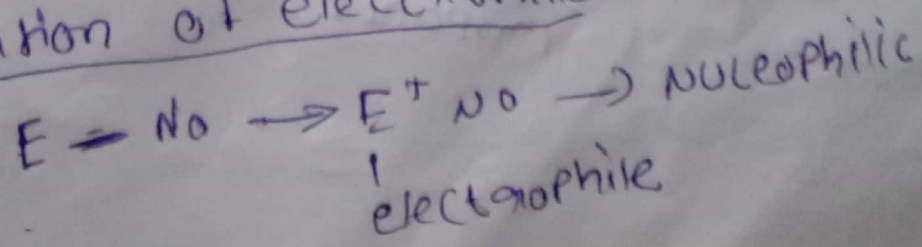 tion of elect
E - No → E⁺ NO → Nuleophilic
electrophile